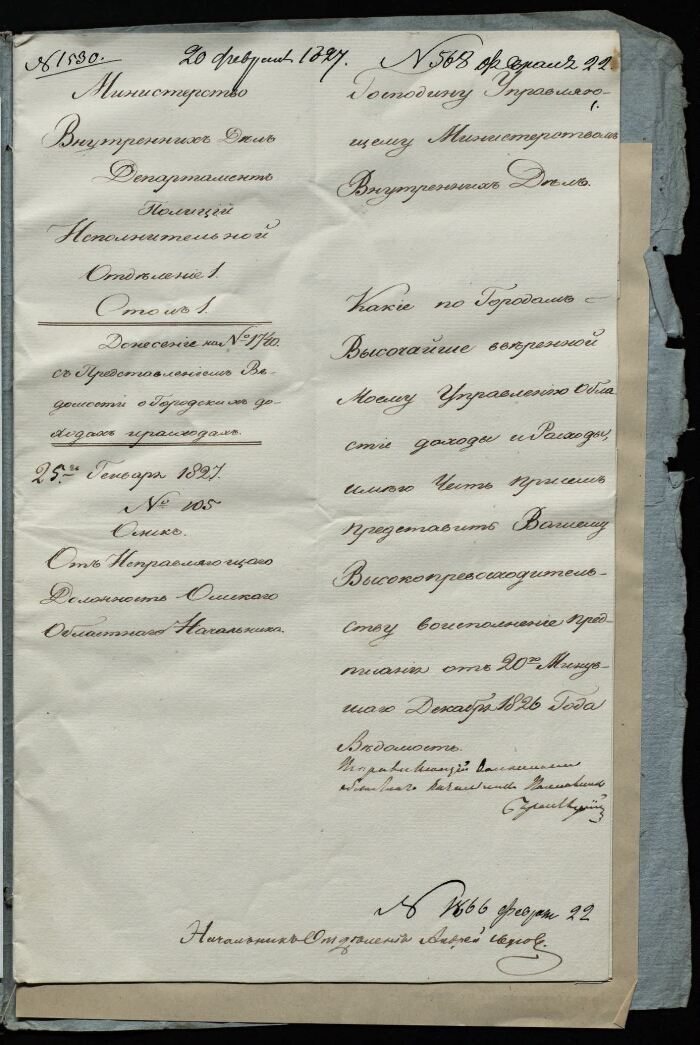 № 1530. 20 февраля 1827. № 568 февраля 22
Министерство
Внутреннихъ Дѣлъ
Департаментъ
Полиціи
Исполнительной
Отдѣленіе 1.
Столъ 1.
Донесеніе на № 1740.
съ Представленіемъ Вѣ-
домости о Городскихъ до-
ходахъ и расходахъ.
25.го Генваря 1827.
№ 105
Омскъ.
Отъ Исправляющаго
Должность Омскаго
Областнаго Начальника.
Господину Управляю-
щему Министерствомъ
Внутреннихъ Дѣлъ.
Какіе по Городамъ
Высочайше ввѣренной
Моему Управленію Обла
сти доходы и Расходы,
имѣю Честь присемъ
представить Вашему
Высокопревосходитель-
ству воисполненіе Пред-
писанія отъ 20го Минув-
шаго Декабря 1826 Года
Вѣдомость.
областнаго начальника Полковникъ
№ 1866 февраля 22
Начальникъ Отдѣленія Андрей